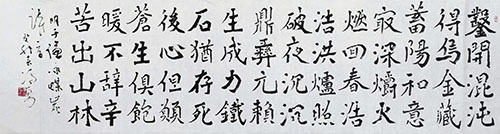 鑿開混沌
得烏金藏
蓄陽和意
冣深爝火
燃囬春浩
浩洪爐照
破夜沉沉
鼎彝元賴
生成力鐵
石猶存死
後心但願
蒼生俱飽
暖不辭辛
苦出山林
明于謙咏煤炭